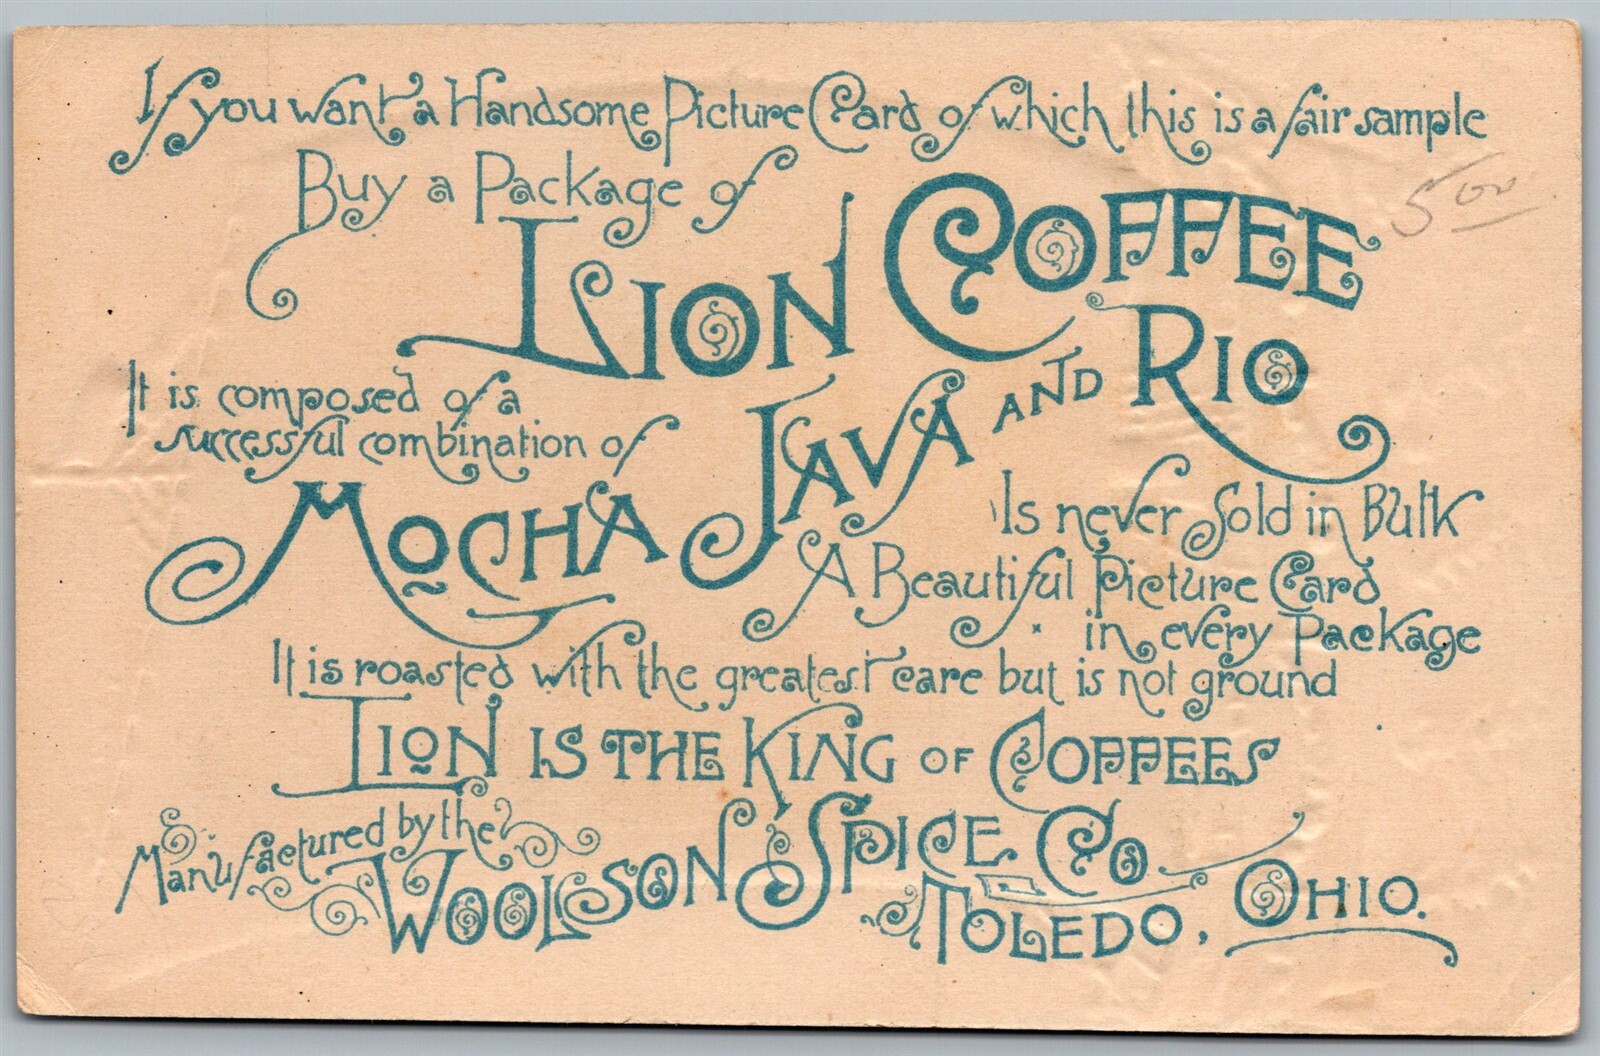 If you want a Handsome Picture Card of which this is a fair sample
Buy a Package of
LION COFFEE
5 00
It is composed of a
successful combination of
MOCHA JAVA AND RIO
Is never Sold in Bulk
A Beautiful Picture Card
in every Package
It is roasted with the greatest care but is not ground
LION IS THE KING OF COFFEES
Manufactured by the
WOOLSON SPICE CO.
TOLEDO, OHIO.